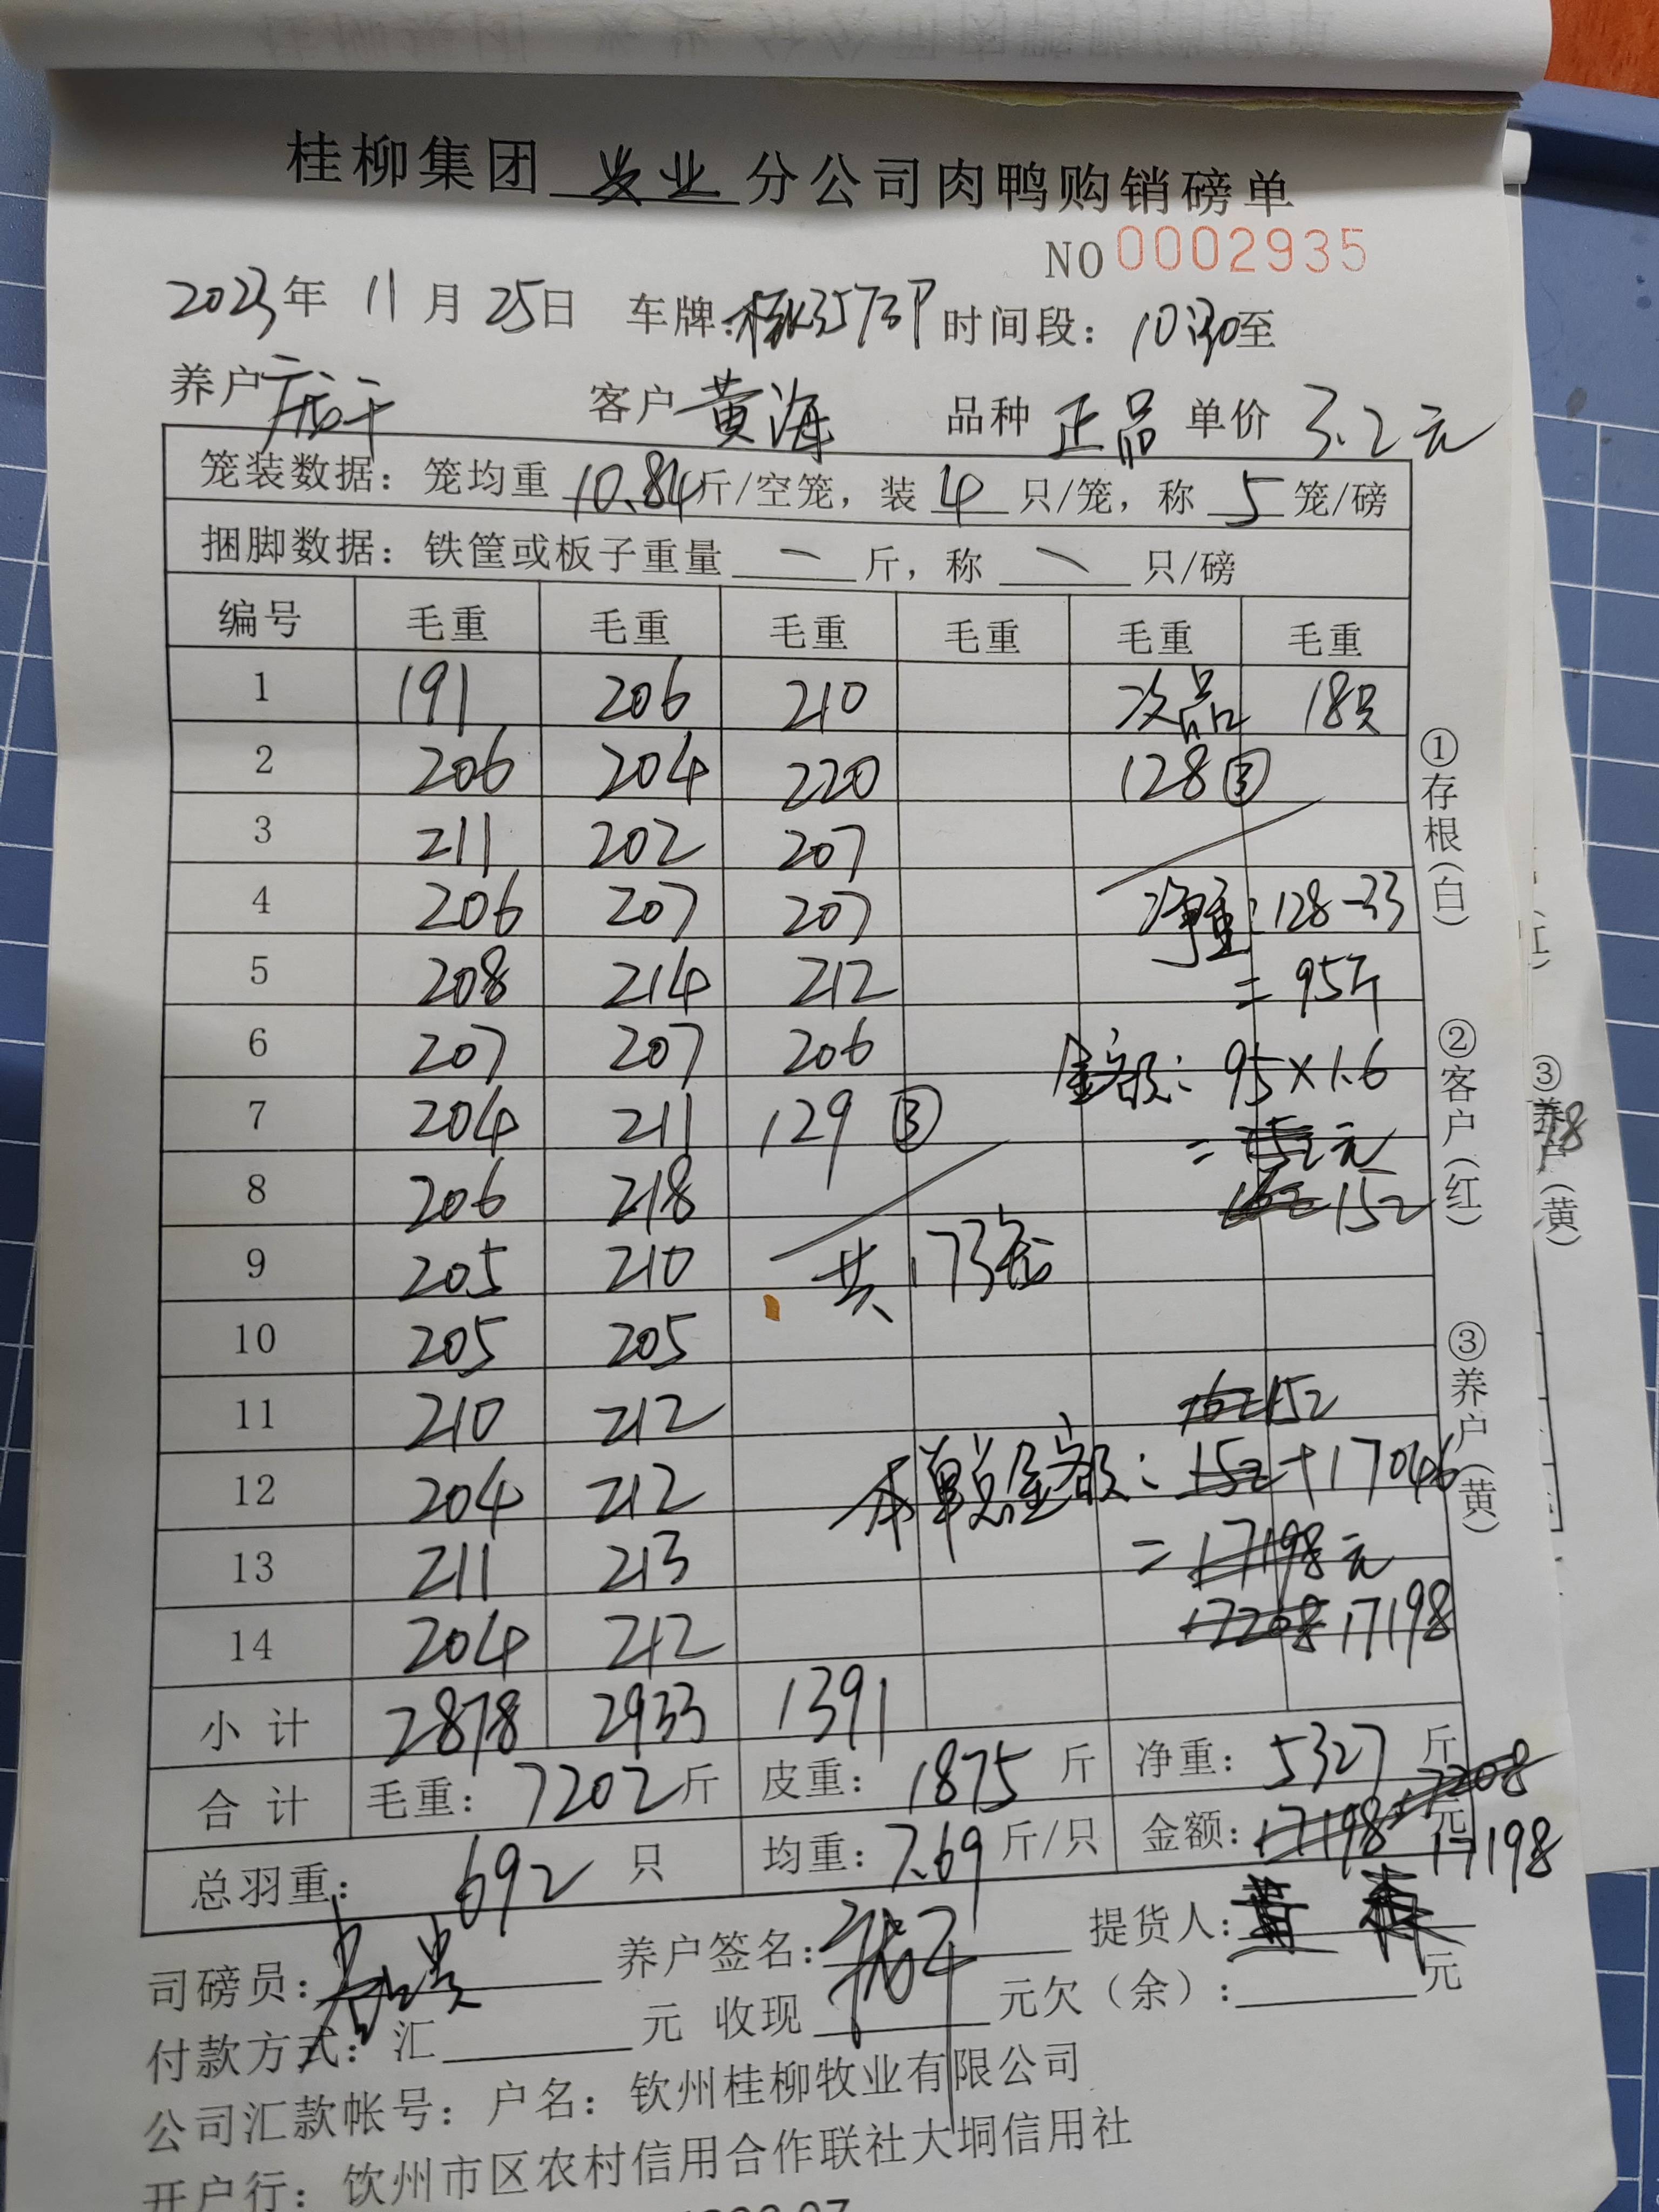 桂柳集团 农业 分公司肉鸭购销磅单
NO 0002935
2023年 11月 25日 车牌: 时间段: 10:30至
养户 庞干 客户 黄海 品种 正品 单价 3.2元
笼装数据: 笼均重 10.84斤/空笼, 装 4 只/笼, 称 5 笼/磅
捆脚数据: 铁筐或板子重量 — 斤, 称 — 只/磅
编号 毛重 毛重 毛重 毛重 毛重 毛重
1 191 206 210 次品 18只
2 206 204 220 128 ③
3 211 202 207
4 206 207 207 净重: 128-33
5 208 214 212 = 95斤
6 207 207 206 金额: 95×1.6
7 204 211 129 ③ = 152元
8 206 218 152
9 205 210 共173笼
10 205 205
11 210 212 152
12 204 212 本单总金额: 152+17046
13 211 213 = 17198元
14 204 212 17208 17198
小计 2878 2933 1391
合计 毛重: 7202斤 皮重: 1875 斤 净重: 5327 斤
总羽重: 692 只 均重: 7.69 斤/只 金额: 17198 17208 元 17198
司磅员: 养户签名: 提货人:
付款方式: 汇 元 收现 元欠(余): 元
公司汇款帐号: 户名: 钦州桂柳牧业有限公司
开户行: 钦州市区农村信用合作联社大垌信用社
①存根(白)
②客户(红)
③养户(黄)
③养户(黄)
78